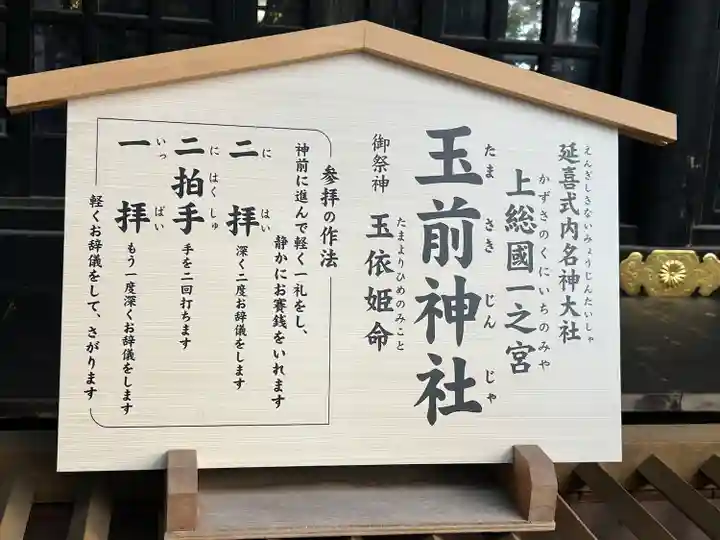 延喜式内名神大社
えんぎしきないみょうじんたいしゃ
上総國一之宮
かずさのくにいちのみや
玉前神社
たまさきじんじゃ
御祭神 玉依姫命
たまよりひめのみこと
参拝の作法
神前に進んで軽く一礼をし、
静かにお賽銭をいれます
二拝
にはい
深く二度お辞儀をします
二拍手
にはくしゅ
手を二回打ちます
一拝
いっぱい
もう一度深くお辞儀をします
軽くお辞儀をして、さがります